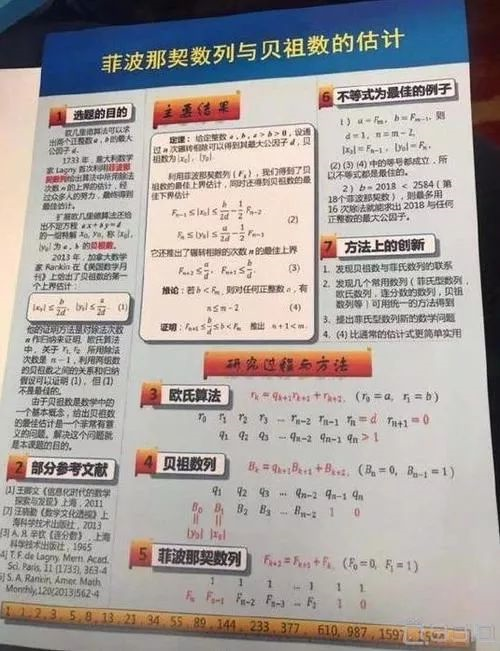 菲波那契数列与贝祖数的估计
1 选题的目的
欧几里德算法可以求
出两个正整数 a, b 的最大
公因子 d.
1733 年, 意大利数学
家 Lagny 首次利用菲波那
契数列给出算法中所用除法
次数 n 的上界的估计, 经
过众多人的努力, 最终得到
最佳估计.
扩展欧几里德算法还给
出不定方程 ax + by = d
的一组特解 x₀, y₀, 称 |x₀|,
|y₀| 为 a, b 的贝祖数.
2013 年, 加拿大数学
家 Rankin 在《美国数学月
刊》上给出了贝祖数的第一
个上界估计:
|x₀| ≤ b/2d, |y₀| ≤ a/2d (1)
他的证明方法是对除法次数
n 作归纳来证明. 欧氏算法
中, 关于 r₁, r₂ 所用除法
次数是 n − 1, 利用两组数
的贝祖数之间的关系和归纳
假设可以证明 (1), 但 (1)
不是最佳的.
由于贝祖数是数学中的
一个基本概念, 给出贝祖数
的最佳估计是一个非常有意
义的问题. 解决这个问题就
是本课题的目的.
2 部分参考文献
[1] 王卿文《信息化时代的数学
探索与发现》上海, 2011
[2] 汪晓勤《数学文化透视》上
海科学技术出版社, 2013
[3] А. Я. 辛钦《连分数》, 上海
科学技术出版社, 1965
[4] T. F. de Lagny, Mem. Acad.
Sci. Paris, 11 (1733), 363-4
[5] S. A. Rankin, Amer. Math.
Monthly,120(2013)562-4
主要结果
定理: 给定整数 a, b, a > b > 0, 设通
过 n 次辗转相除可以得到其最大公因子 d, 贝
祖数为 |x₀|, |y₀|.
利用菲波那契数列 (Fₖ), 我们得到了贝
祖数的最佳上界估计, 同时还得到贝祖数的最
佳下界估计
(2)
它还推出了辗转相除的次数 n 的最佳上界
Fₙ₊₂ ≤ a/d, Fₙ₊₁ ≤ b/d (3)
推论: 若 b < Fₘ, 则对任何正整数, 有
n ≤ m − 2 (4)
证明: Fₙ₊₁ ≤ b/d ≤ b < Fₘ 推出 n + 1 < m.
6 不等式为最佳的例子
1) a = Fₘ, b = Fₘ₋₁, 则
d = 1, n = m − 2,
(2) (3) (4) 中的等号都成立, 所
以不等式都是最佳的.
2) b = 2018 < 2584 (第
18个波那契数), 则最多用
16 次除法就能求出 2018 与任何
正整数的最大公因子.
7 方法上的创新
1. 发现贝祖数与菲氏数列的联系
2. 发现几个常用数列 (菲氏型数列,
欧氏数列, 连分数的数列, 贝祖
数列等) 可用统一的方法得到
3. 提出菲氏型数列新的数学问题
4. (4) 比通常的估计式更简单实用
研究过程与方法
3 欧氏算法 rₖ = qₖ₊₁rₖ₊₁ + rₖ₊₂, (r₀ = a, r₁ = b)
r₀ r₁ r₂ r₃ ... rₙ₋₂ rₙ₋₁ rₙ = d rₙ₊₁ = 0
q₁ q₂ q₃ ... qₙ₋₂ qₙ₋₁ qₙ > 1
4 贝祖数列 Bₖ = qₖ₊₁Bₖ₊₁ + Bₖ₊₂, (Bₙ = 0, Bₙ₋₁ = 1)
q₁ q₂ q₃ ... qₙ₋₂ qₙ₋₁ qₙ
B₀ B₁ B₂ B₃ ... Bₙ₋₂ 1 0
|| ||
|y₀| |x₀|
5 菲波那契数列 Fₖ₊₂ = Fₖ₊₁ + Fₖ, (F₀ = 0, F₁ = 1)
1 1 1 ... 1 1 1
Fₙ Fₙ₋₁ Fₙ₋₂ Fₙ₋₃ ... F₂ 1 0
1, 1, 2, 3, 5, 8, 13, 21, 34, 55, 89, 144, 233, 377, 610, 987, 1597,